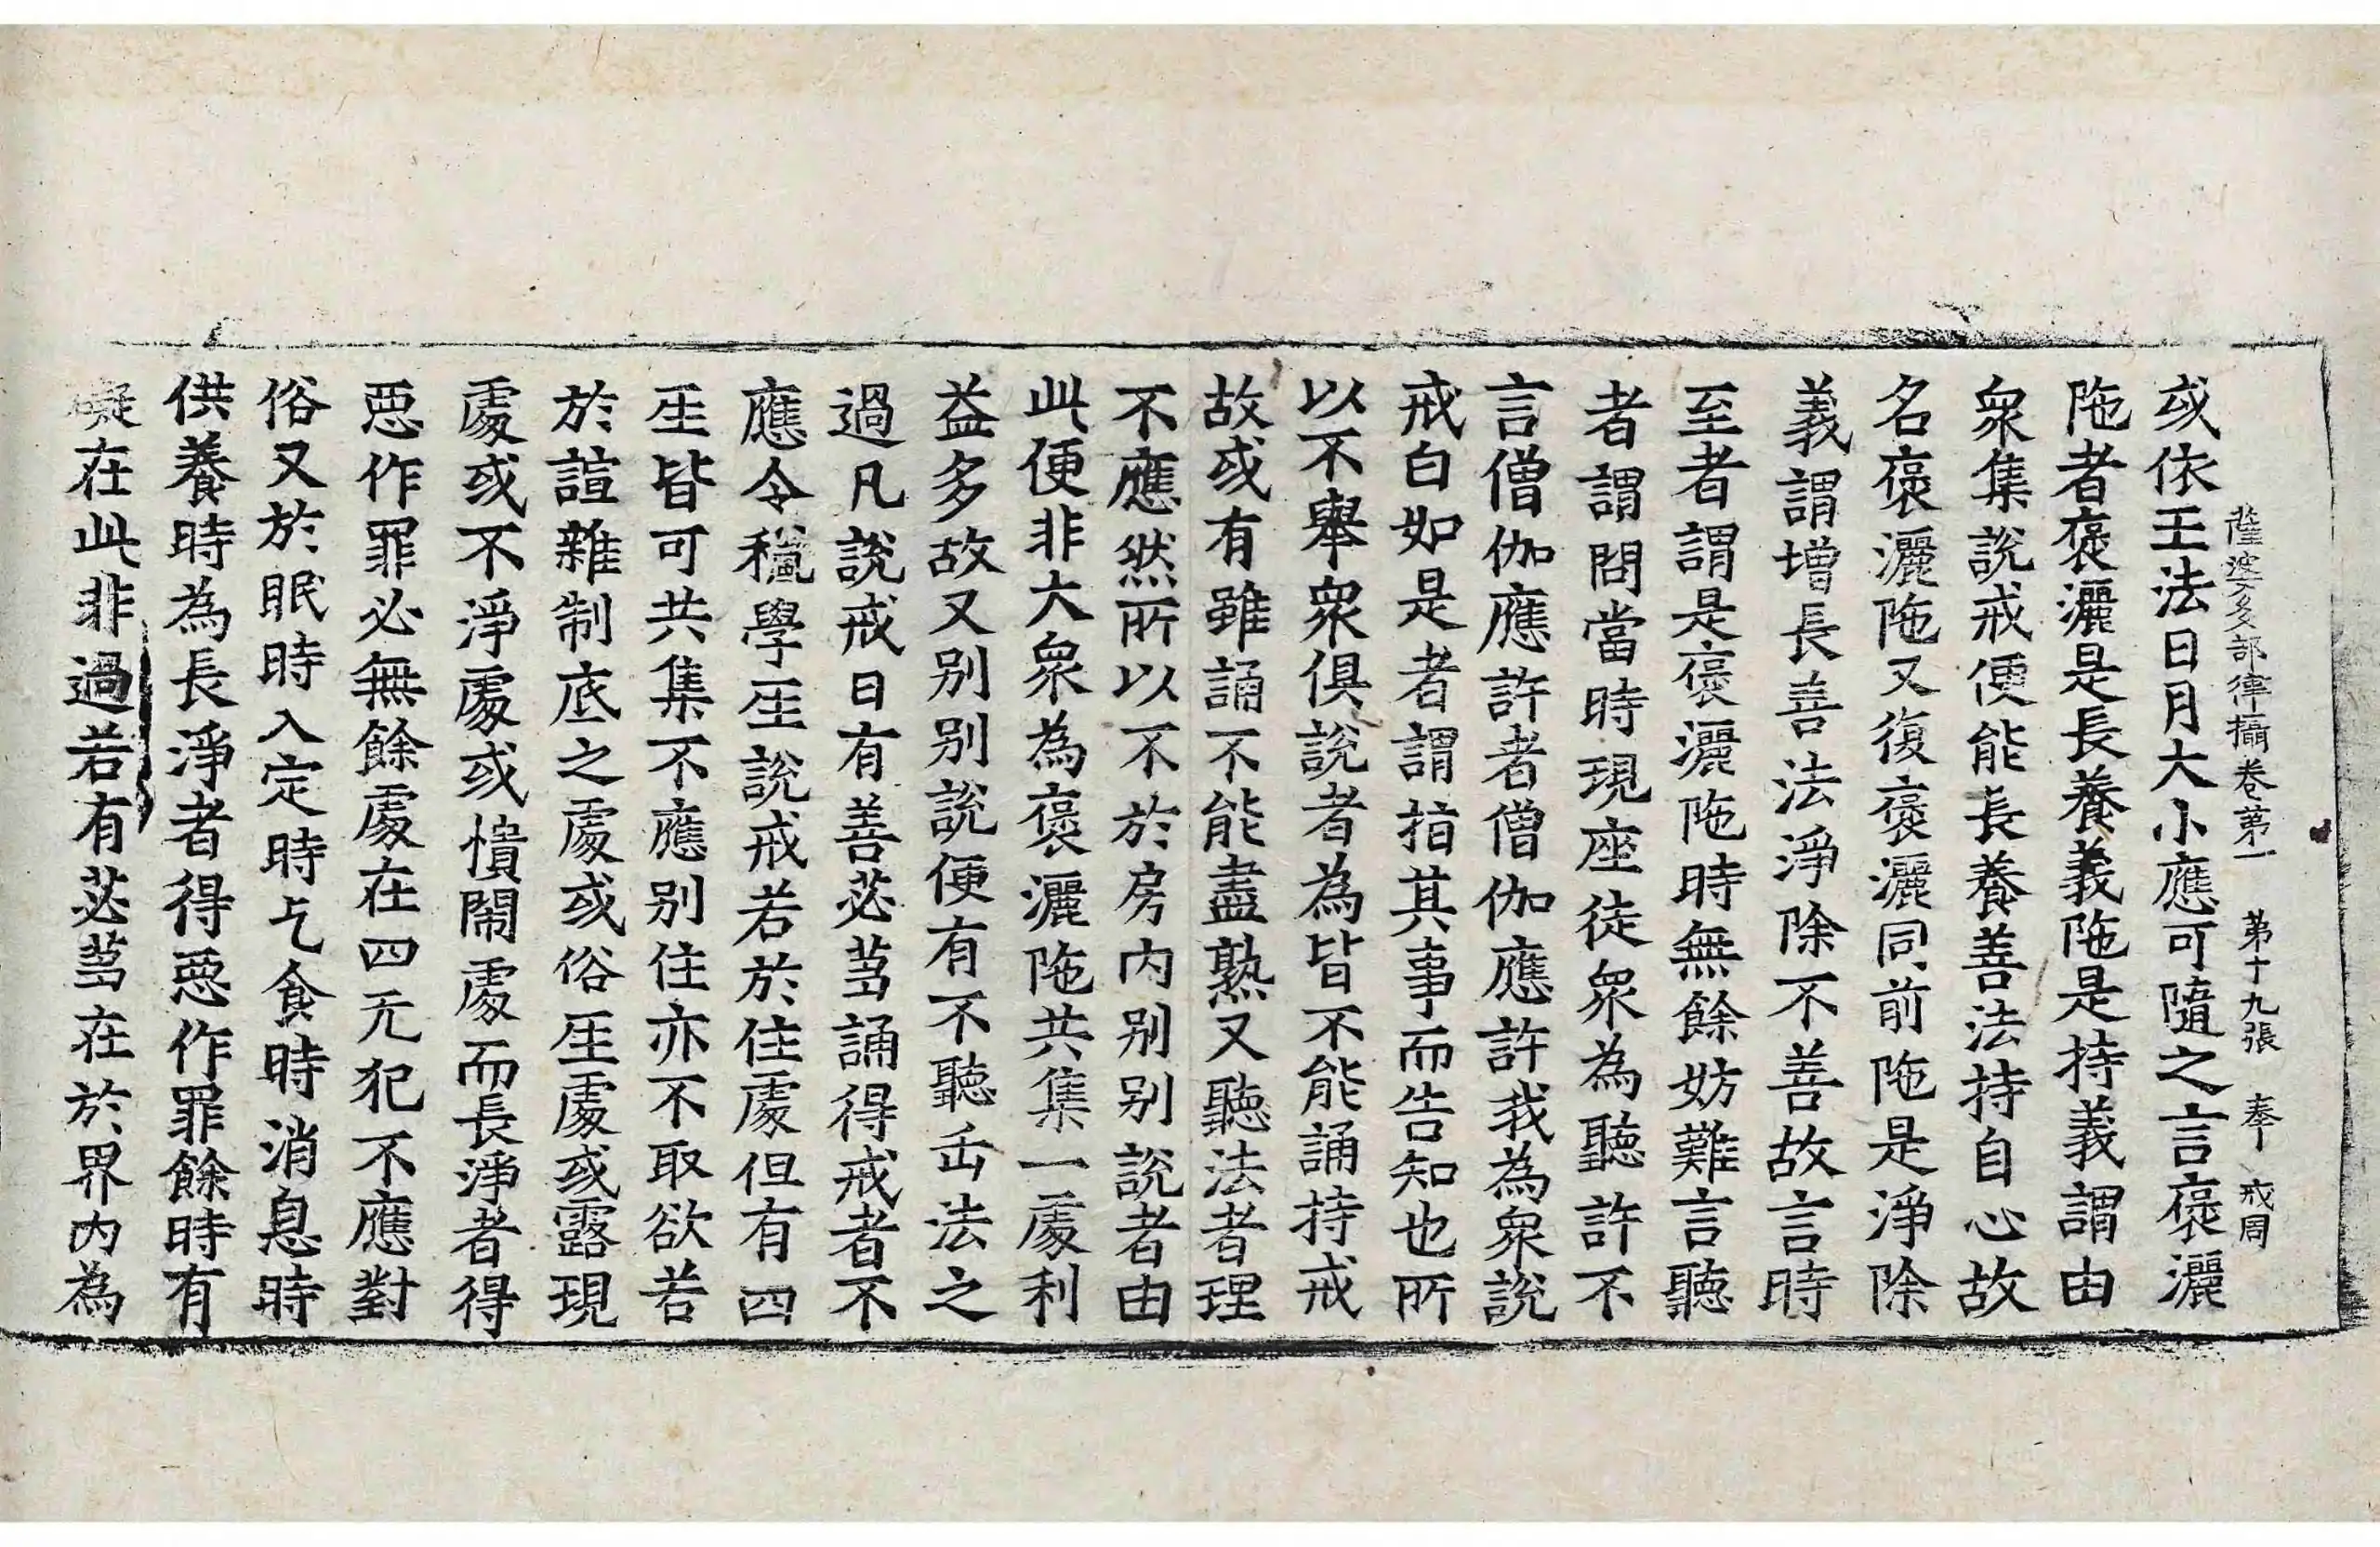 薩婆多部律攝卷第一　第十九張　奉　戒周
或依王法日月大小應可隨之言褒灑
陁者褒灑是長養義陁是持義謂由
衆集說戒便能長養善法持自心故
名褒灑陁又復褒灑同前陁是淨除
義謂增長善法淨除不善故言時
至者謂是褒灑陁時無餘妨難言聽
者謂問當時現座徒衆為聽許不
言僧伽應許者僧伽應許我為衆說
戒白如是者謂指其事而告知也所
以不舉衆俱說者為皆不能誦持戒
故或有雖誦不能盡熟又聽法者理
不應然所以不於房内别别說者由
此便非大衆為褒灑陁共集一處利
益多故又别别說便有不聽𠫤法之
過凡說戒日有善苾芻誦得戒者不
應令穐學𤯔說戒若於住處但有四
𤯔皆可共集不應别住亦不取欲若
於諠雜制底之處或俗𤯔處或露現
處或不淨處或憒閙處而長淨者得
惡作罪必無餘處在四无犯不應對
俗又於眠時入定時乞食時消息時
供養時為長淨者得惡作罪餘時有
礙在此非過若有苾芻在於界内為